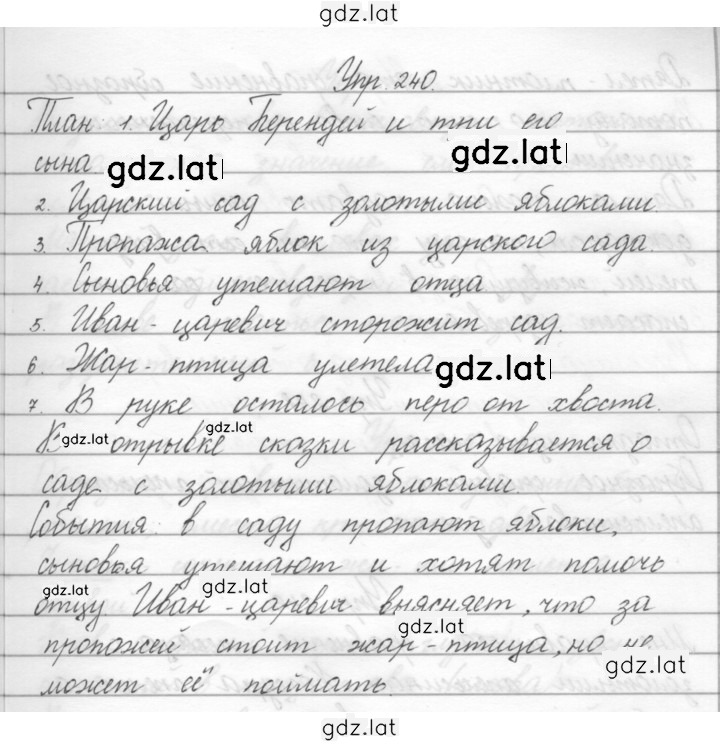 gdz.lat
Упр. 240.
План: 1. Царь Берендей и три его
сына
gdz.lat
gdz.lat
2. Царский сад с золотыми яблоками.
3. Пропажа яблок из царского сада.
4. Сыновья утешают отца
5. Иван-царевич сторожит сад.
6. Жар-птица улетела
gdz.lat
7. В руке осталось перо от хвоста.
В отрывке сказки рассказывается о
gdz.lat
gdz.lat
саде с золотыми яблоками.
События: в саду пропают яблоки,
сыновья утешают и хотят помочь
gdz.lat
gdz.lat
отцу Иван-царевич выясняет, что за
gdz.lat
пропожей стоит жар-птица, но не
gdz.lat
может её поймать.
gdz.lat